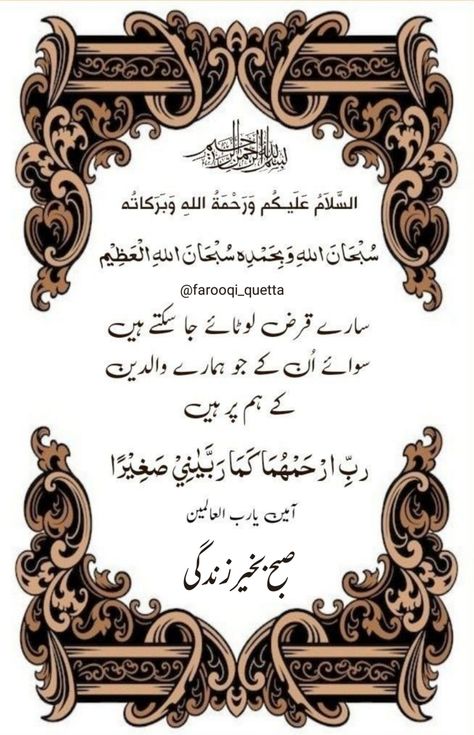 بسم الله الرحمن الرحيم
السَّلَامُ عَلَيكُم وَرَحْمَةُ اللهِ وَبَرَكَاتُه
سُبْحَانَ اللهِ وَبِحَمْدِهِ سُبْحَانَ اللهِ الْعَظِيْمِ
@farooqi_quetta
سارے قرض لوٹائے جا سکتے ہیں
سوائے اُن کے جو ہمارے والدین
کے ہم پر ہیں
رَبِّ ارْحَمْهُمَا كَمَا رَبَّيَانِيْ صَغِيْرًا
آمین یا رب العالمین
صبح بخیر زندگی